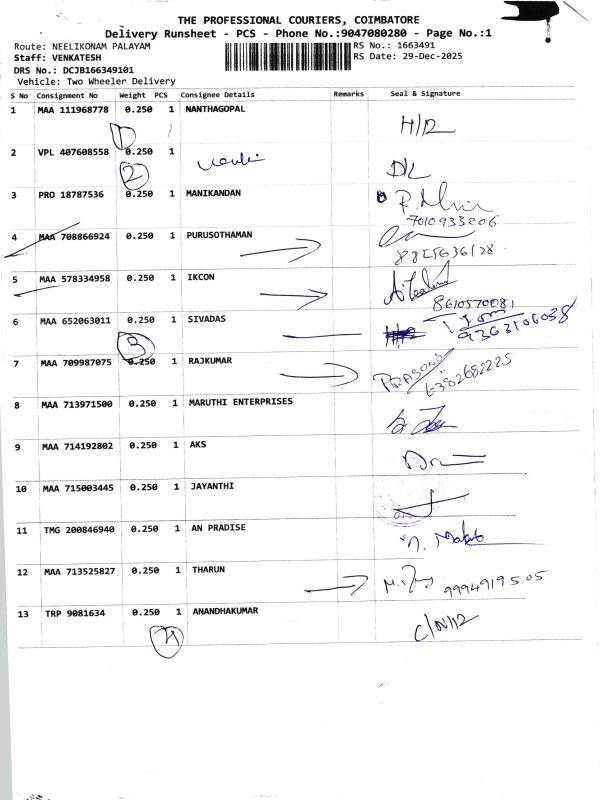 THE PROFESSIONAL COURIERS, COIMBATORE
Delivery Runsheet - PCS - Phone No.:9047080280 - Page No.:1
Route: NEELIKONAM PALAYAM
RS No.: 1663491
Staff: VENKATESH
RS Date: 29-Dec-2025
DRS No.: DCJB166349101
Vehicle: Two Wheeler Delivery
S No Consignment No Weight PCS Consignee Details Remarks Seal & Signature
1 MAA 111968778 0.250 1 NANTHAGOPAL
1
2 VPL 407608558 0.250 1
2 D/L
3 PRO 18787536 0.250 1 MANIKANDAN
7010933206
4 MAA 708866924 0.250 1 PURUSOTHAMAN
5 MAA 578334958 0.250 1 IKCON
8610570081
6 MAA 652063011 0.250 1 SIVADAS
9363106038
3
7 MAA 709987075 0.250 1 RAJKUMAR
6382682225
8 MAA 713971500 0.250 1 MARUTHI ENTERPRISES
9 MAA 714192802 0.250 1 AKS
10 MAA 715003445 0.250 1 JAYANTHI
11 TMG 200846940 0.250 1 AN PRADISE
12 MAA 713525827 0.250 1 THARUN
9994919505
13 TRP 9081634 0.250 1 ANANDHAKUMAR
4